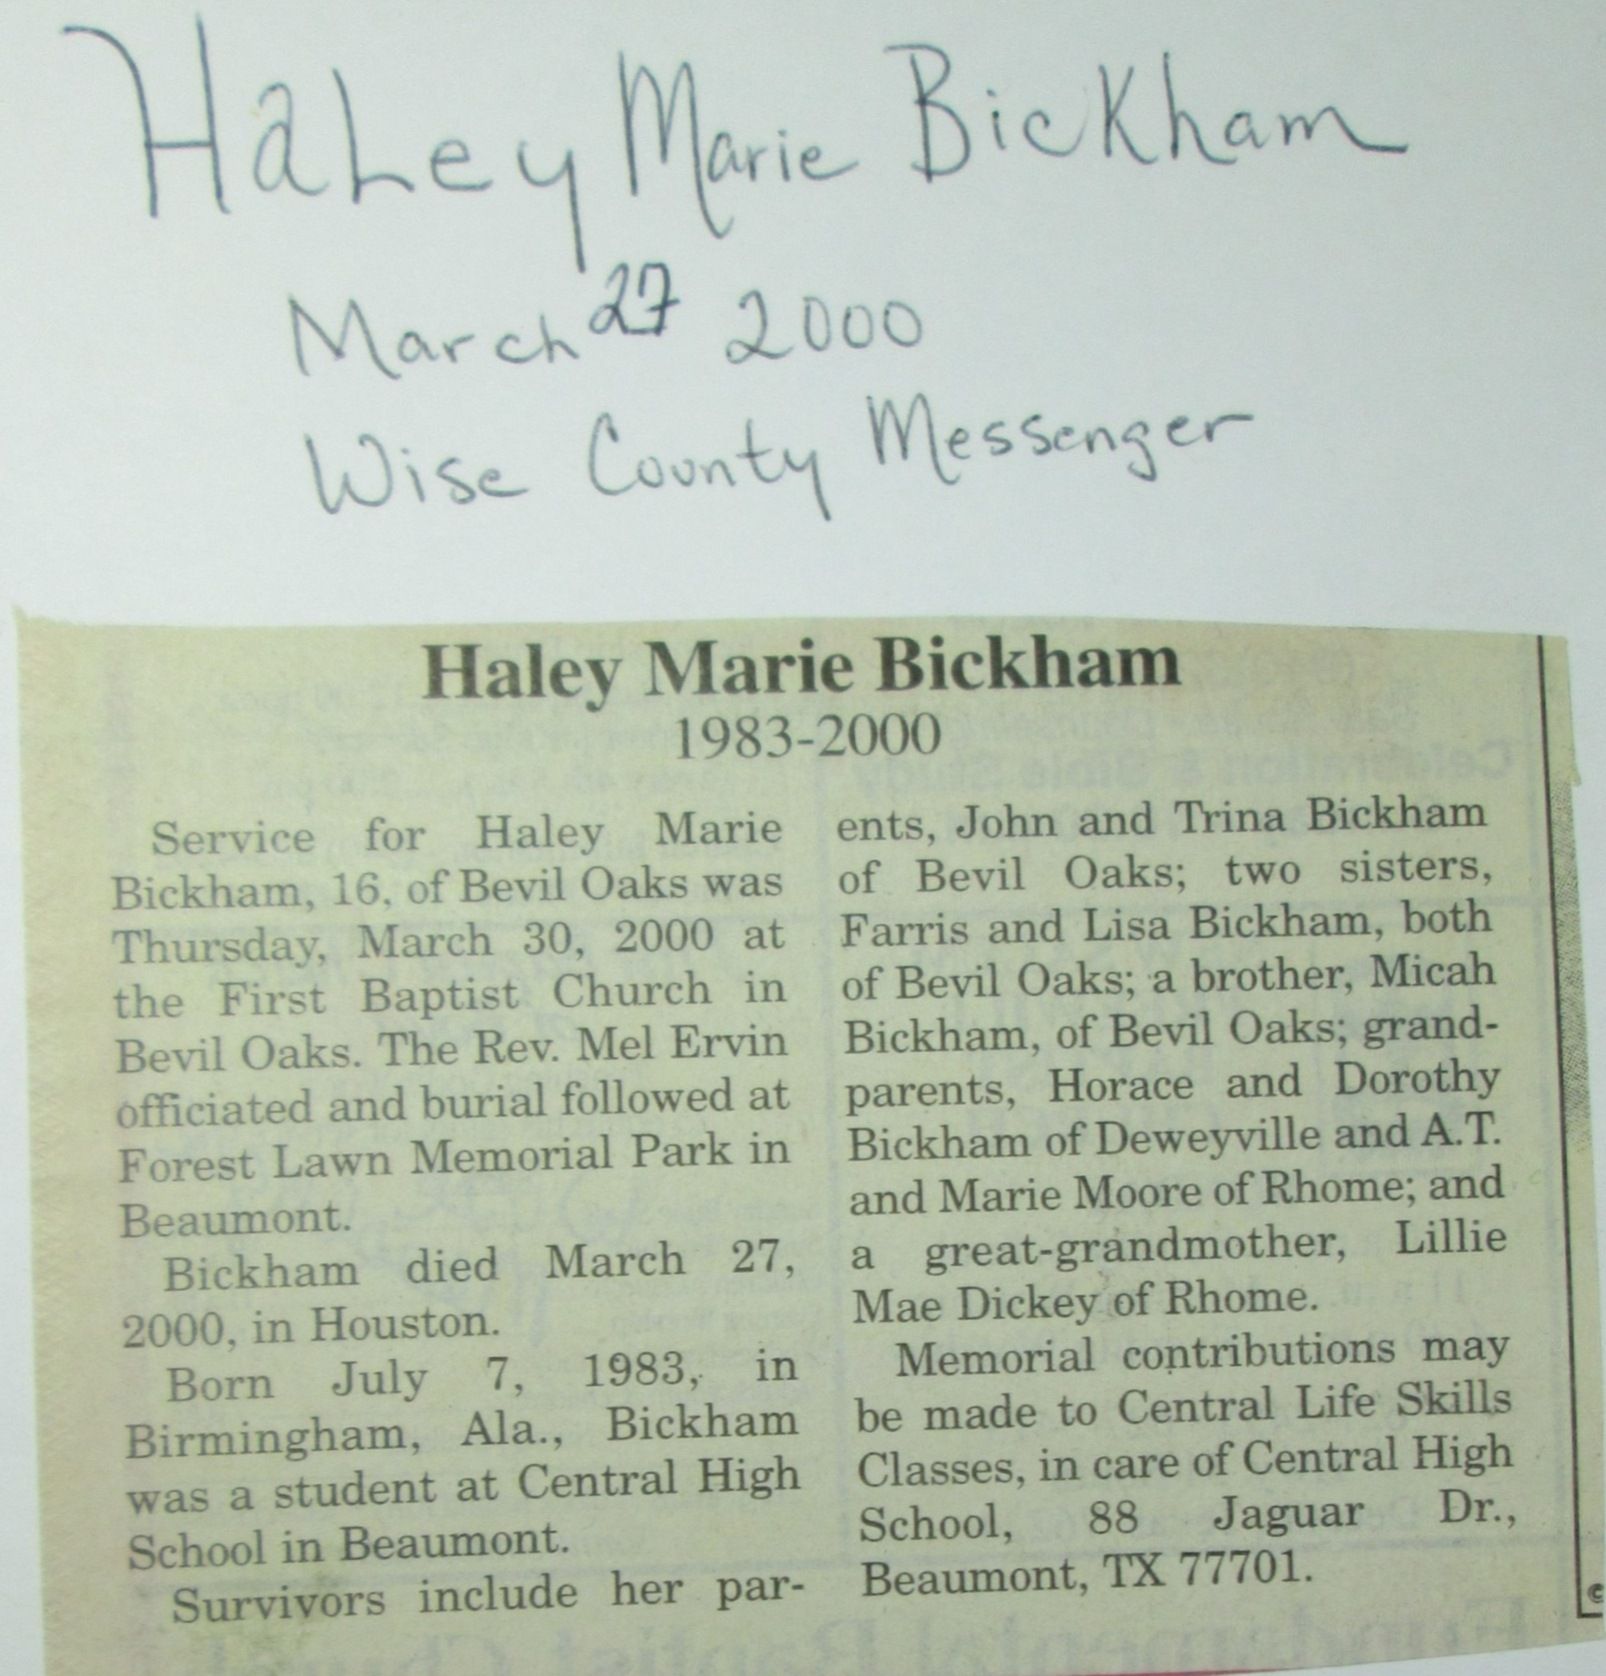 Haley Marie Bickham
March 27 2000
Wise County Messenger
Haley Marie Bickham
1983-2000
Service for Haley Marie
Bickham, 16, of Bevil Oaks was
Thursday, March 30, 2000 at
the First Baptist Church in
Bevil Oaks. The Rev. Mel Ervin
officiated and burial followed at
Forest Lawn Memorial Park in
Beaumont.
Bickham died March 27,
2000, in Houston.
Born July 7, 1983, in
Birmingham, Ala., Bickham
was a student at Central High
School in Beaumont.
Survivors include her par-
ents, John and Trina Bickham
of Bevil Oaks; two sisters,
Farris and Lisa Bickham, both
of Bevil Oaks; a brother, Micah
Bickham, of Bevil Oaks; grand-
parents, Horace and Dorothy
Bickham of Deweyville and A.T.
and Marie Moore of Rhome; and
a great-grandmother, Lillie
Mae Dickey of Rhome.
Memorial contributions may
be made to Central Life Skills
Classes, in care of Central High
School, 88 Jaguar Dr.,
Beaumont, TX 77701.